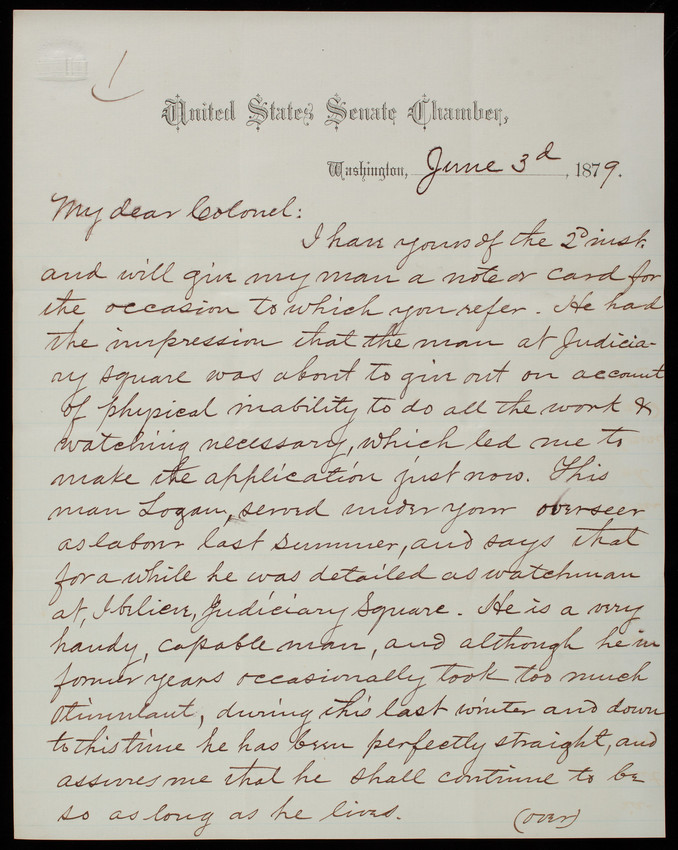 1
United States Senate Chamber,
Washington, June 3d, 1879.
My dear Colonel:
I have yours of the 2d inst.
and will give my man a note or card for
the occasion to which you refer. He had
the impression that the man at Judicia-
ry square was about to give out on account
of physical inability to do all the work &
watching necessary, which led me to
make the application just now. This
man Logan, served under your overseer
as labour last summer, and says that
for a while he was detailed as watchman
at, I believe, Judiciary Square. He is a very
handy, capable man, and although he in
former years occasionally took too much
stimulant, during this last winter and down
to this time he has been perfectly straight, and
assures me that he shall continue to be
so as long as he lives. (over)